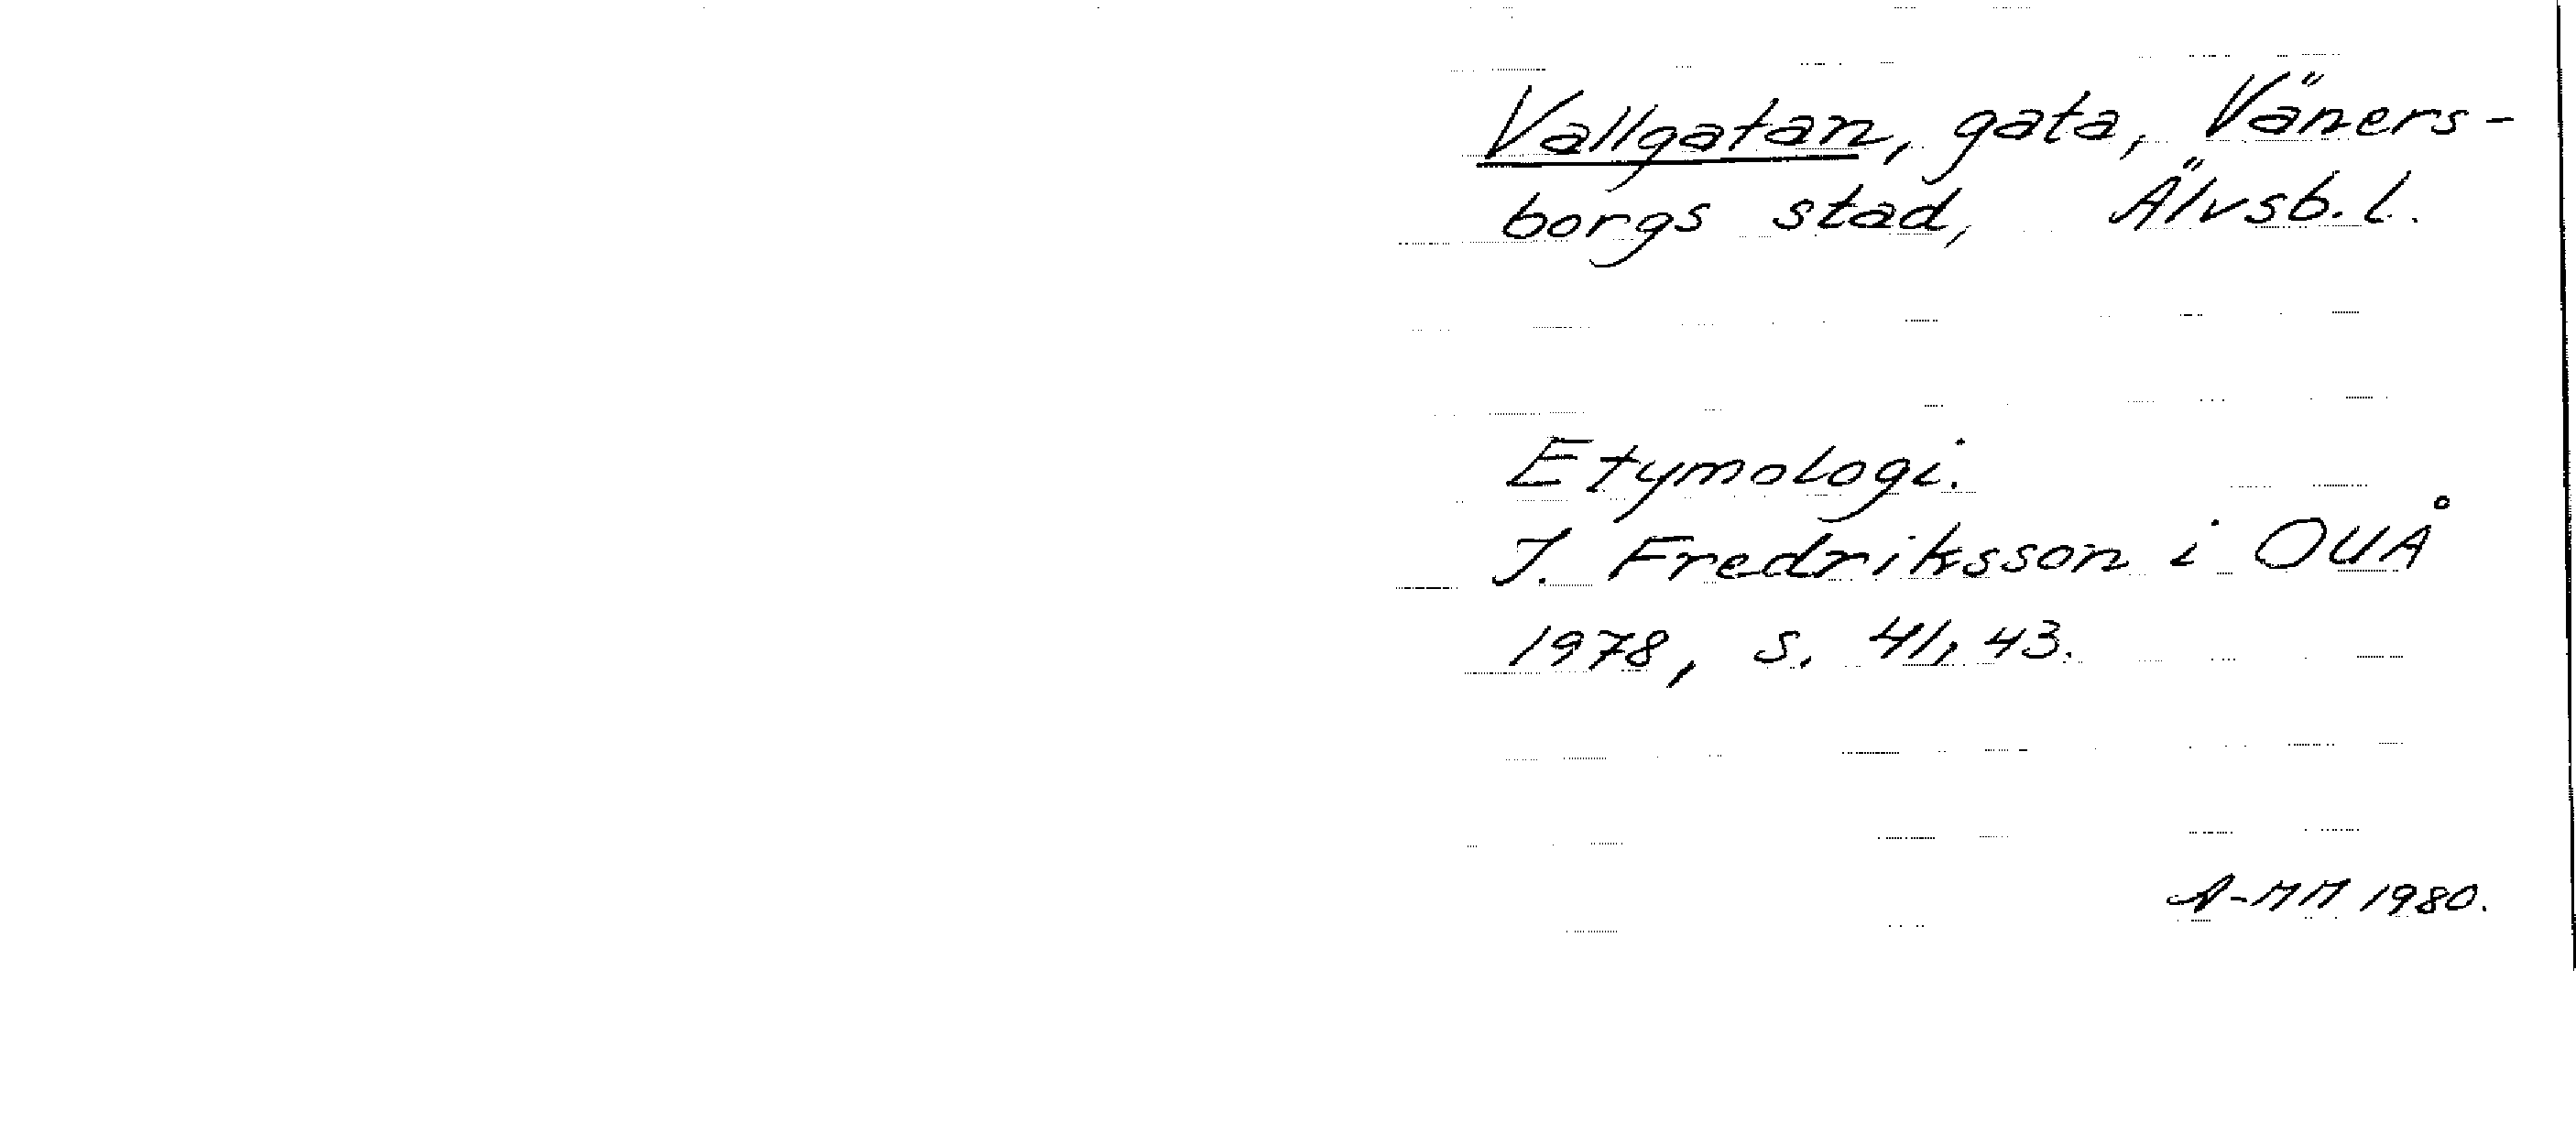 Vallgatan, gata, Väners-
borgs stad, Älvsb. l.
Etymologi.
I. Fredriksson i OUÅ
1978, s. 41, 43.
A-MM 1980.